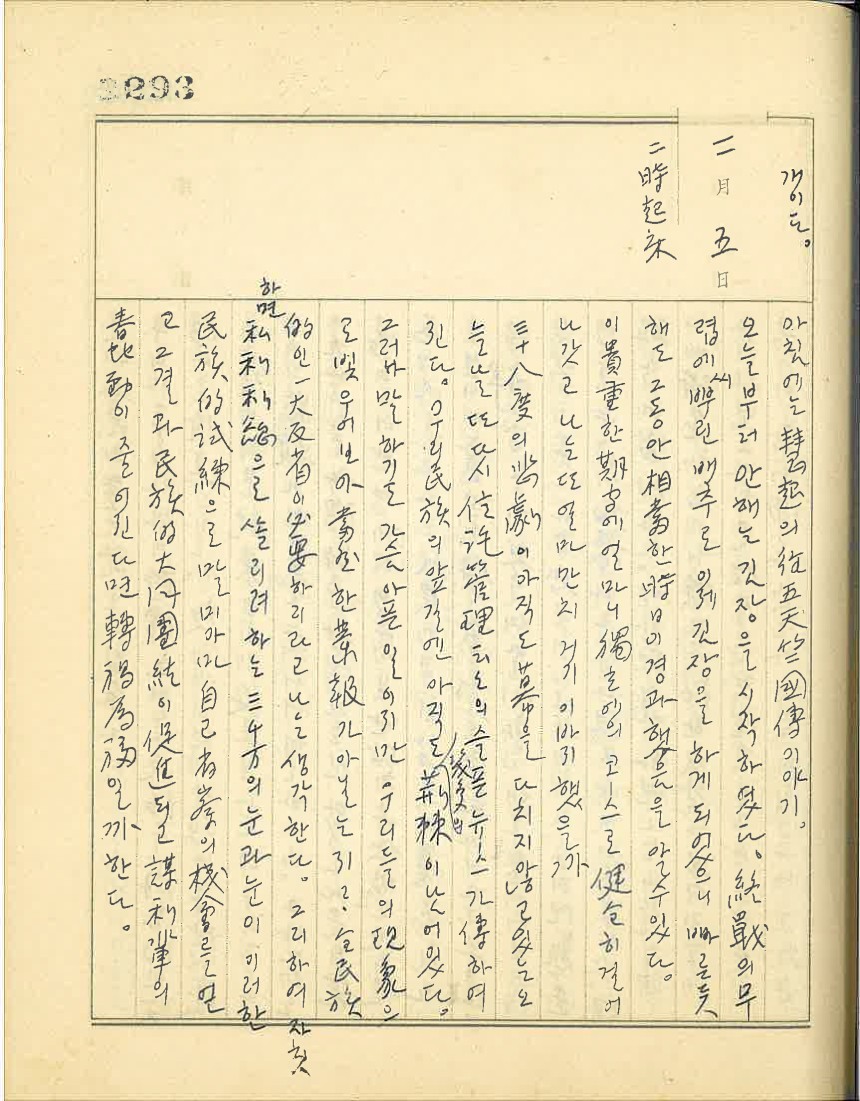 3293
개이다.
二月 五日
二時起床
아침에는 慧超의 往五天竺國傳 이야기.
오늘부터 안해는 김장을 시작하였다. 終戰의 무
렵에 씨뿌린 배추로 이제 김장을 하게 되었으니 빠른듯
해도 그동안 相當한 時日이 경과했음을 알수있다.
이 貴重한 期間에 얼마나 獨立에의 코-스로 健全히 걸어
나갔고 나는 또 얼마만치 거기 이바지했을가
三十八度의 悲劇이 아직도 幕을 다치지 않고있는 오
늘날 또다시 信託管理 되느의 슬픈 뉴-스가 傳하여
진다. 우리 民族의 앞길엔 아직도 荊棘이 남어있다.
그러나 말하기도 가슴아픈 일이지만 우리들의 現象으
로 빛우어보아 當然한 業報가 아닐는지고. 全民族
的인 一大反省이 必要하리라고 나는 생각한다. 그리하여 자칫
하면 私利私慾으로 쏠리려하는 三千万의 눈과 눈이 이러한
民族的 試練으로 말미아마 自己省察의 機會를 얻
고 그결과 民族的 大同團結이 促進되고 謀利輩의
蠢動이 줄어진다면 轉禍爲福일까 한다.